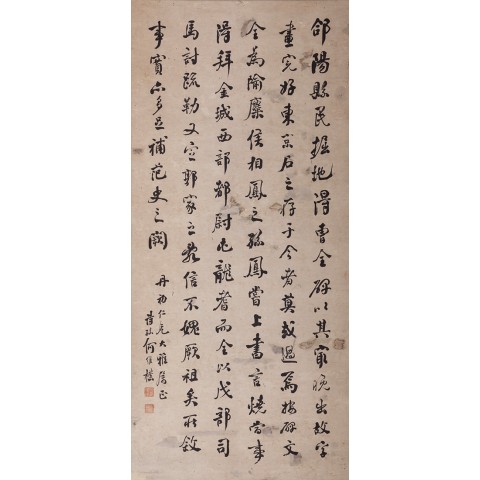 郃陽縣民掘地得曹全碑以其最晚出故字
畫完好東京石之存于今者莫或過焉按碑文
全為隃麋侯相鳳之孫鳳嘗上書言燒當事
得拜金城西部都尉屯龍耆而全以戊部司
馬討疏勒又定郭家之亂信不媿厥祖矣所敘
事實亦多足補范史之闕
丹初仁兄大雅屬正
何維樸